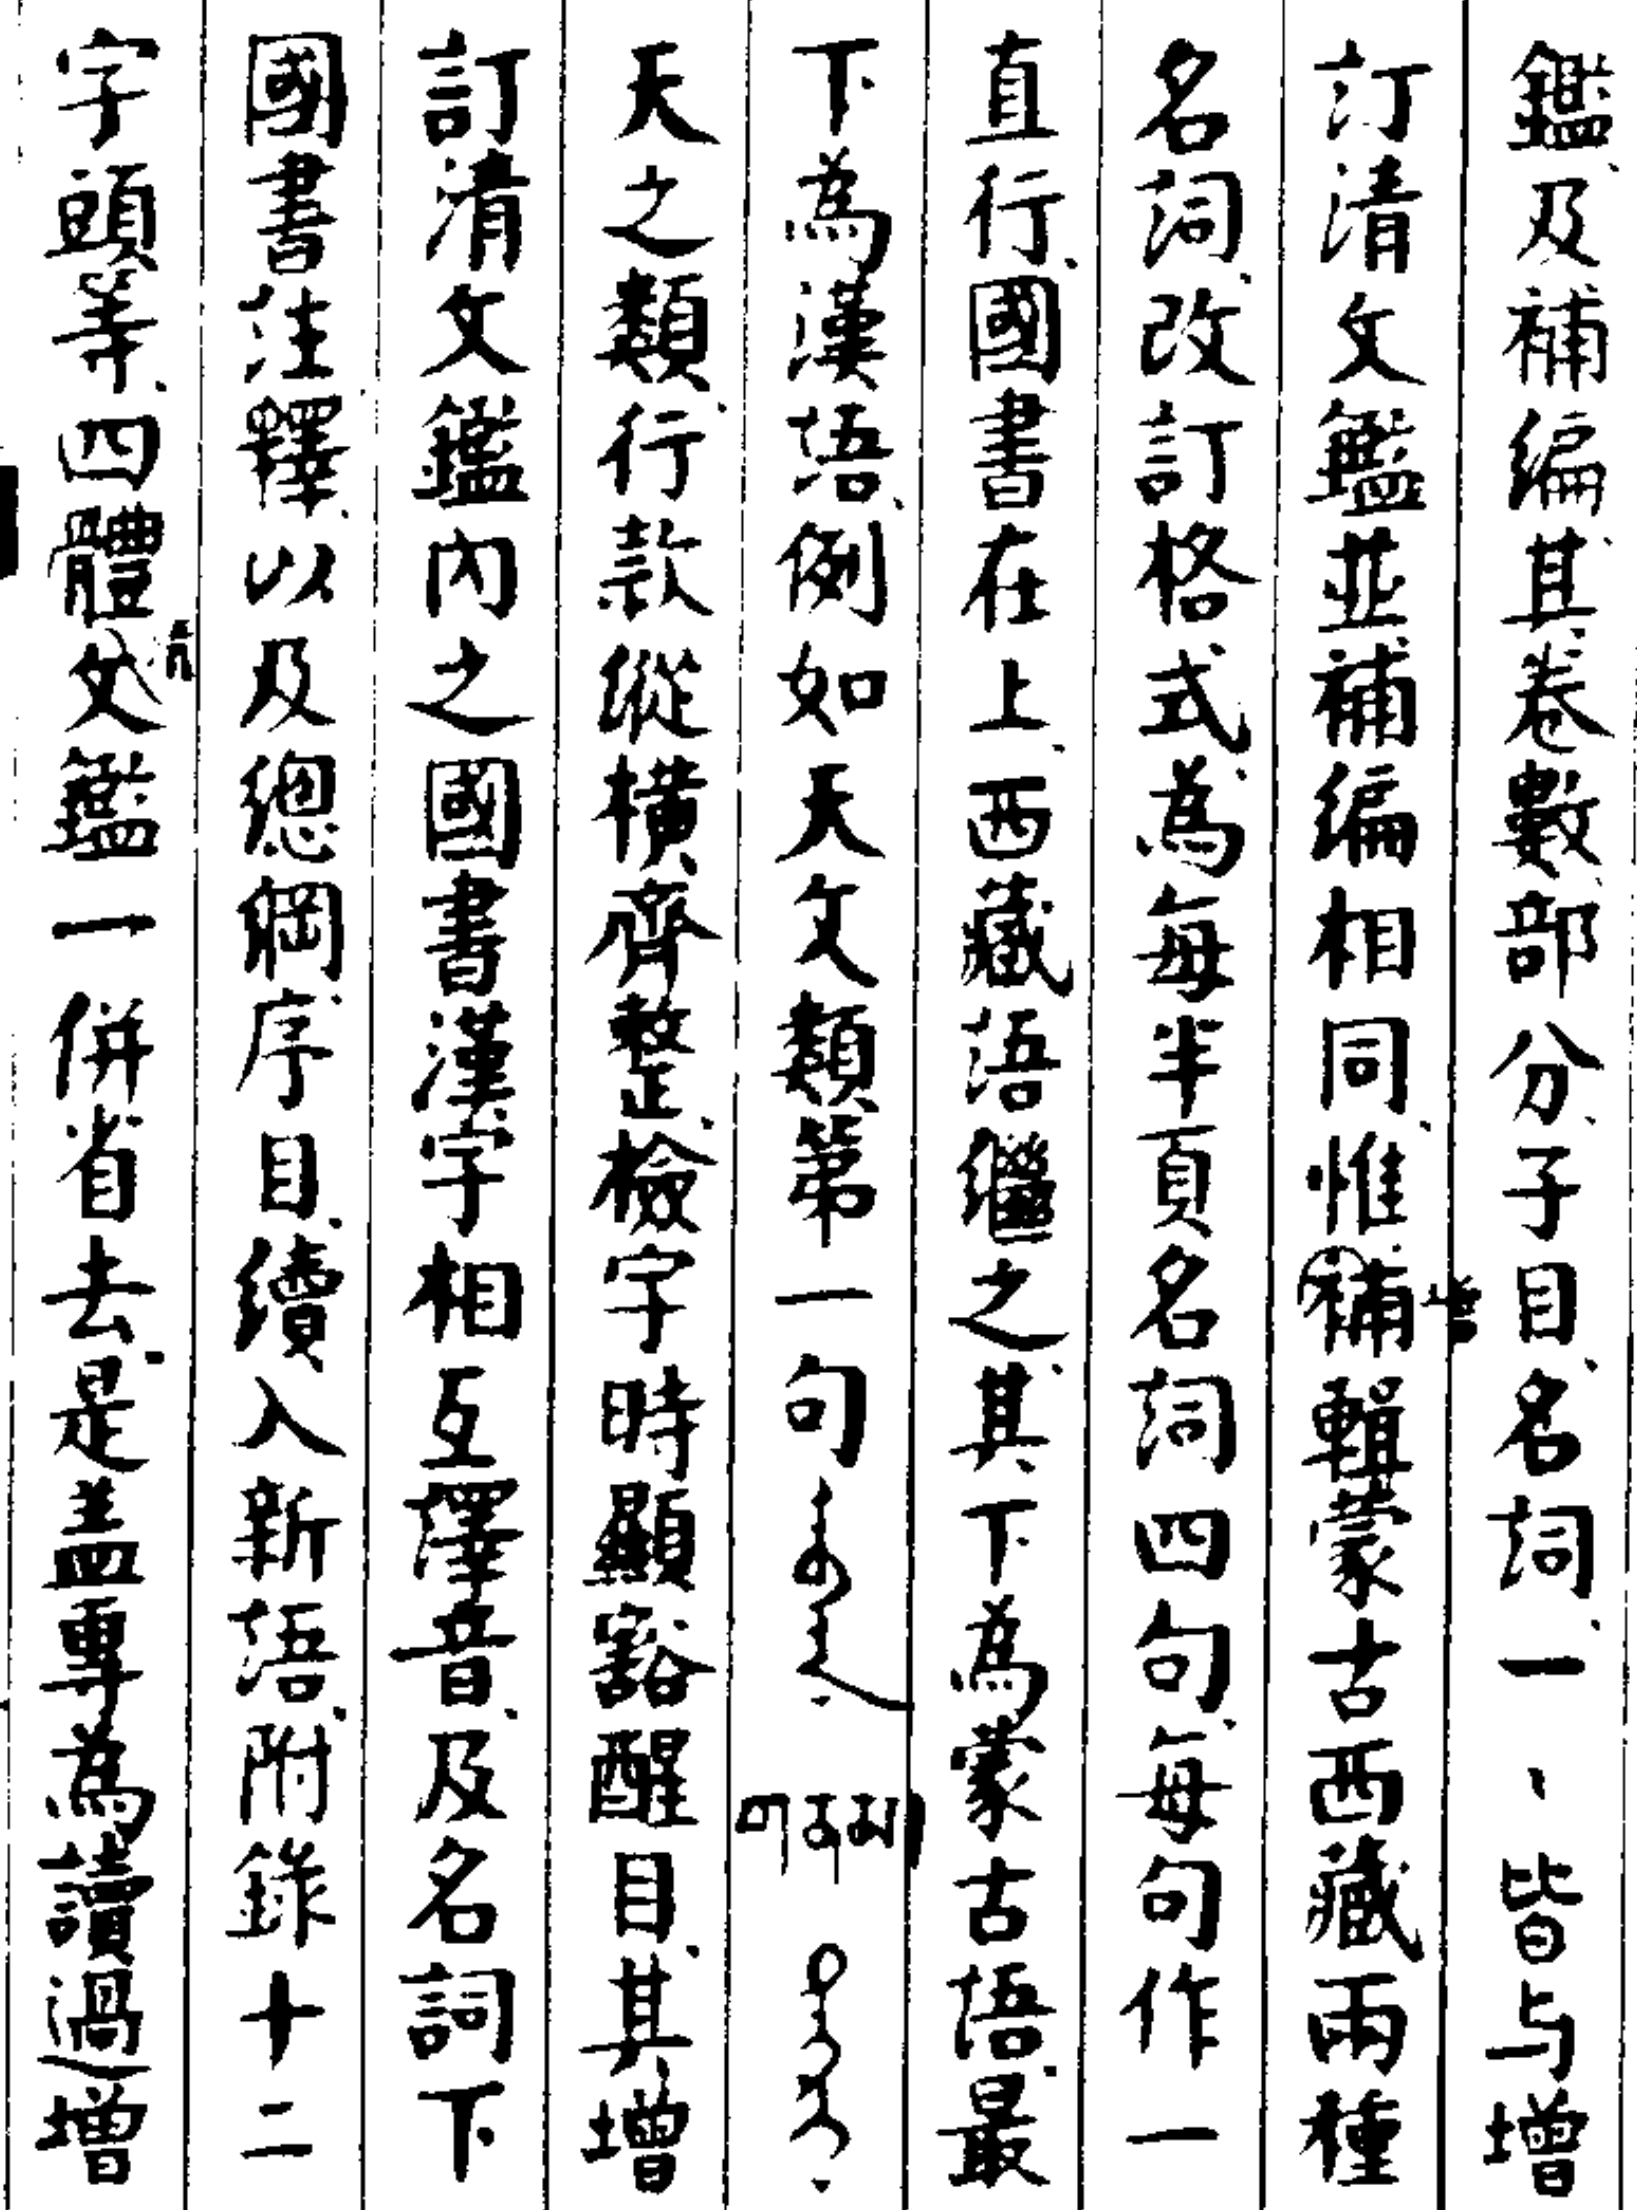 鑑、及補編其卷數、部分、子目、名詞、一、皆与增
訂清文鑑並補編相同、惟補增輯蒙古西藏兩種
名詞、改訂格式、為每半頁名詞四句、每句作一
直行、國書在上、西藏語繼之、其下為蒙古語、最
下為漢語、例如天文類第一句
天之類、行款縱橫齊整、檢字時顯豁醒目、其增
訂清文鑑內之國書漢字相互譯音、及名詞下
國書注釋、以及總綱、序目、續入新語、附錄十二
字頭等、四體文鑑一併省去、是蓋專為讀過增